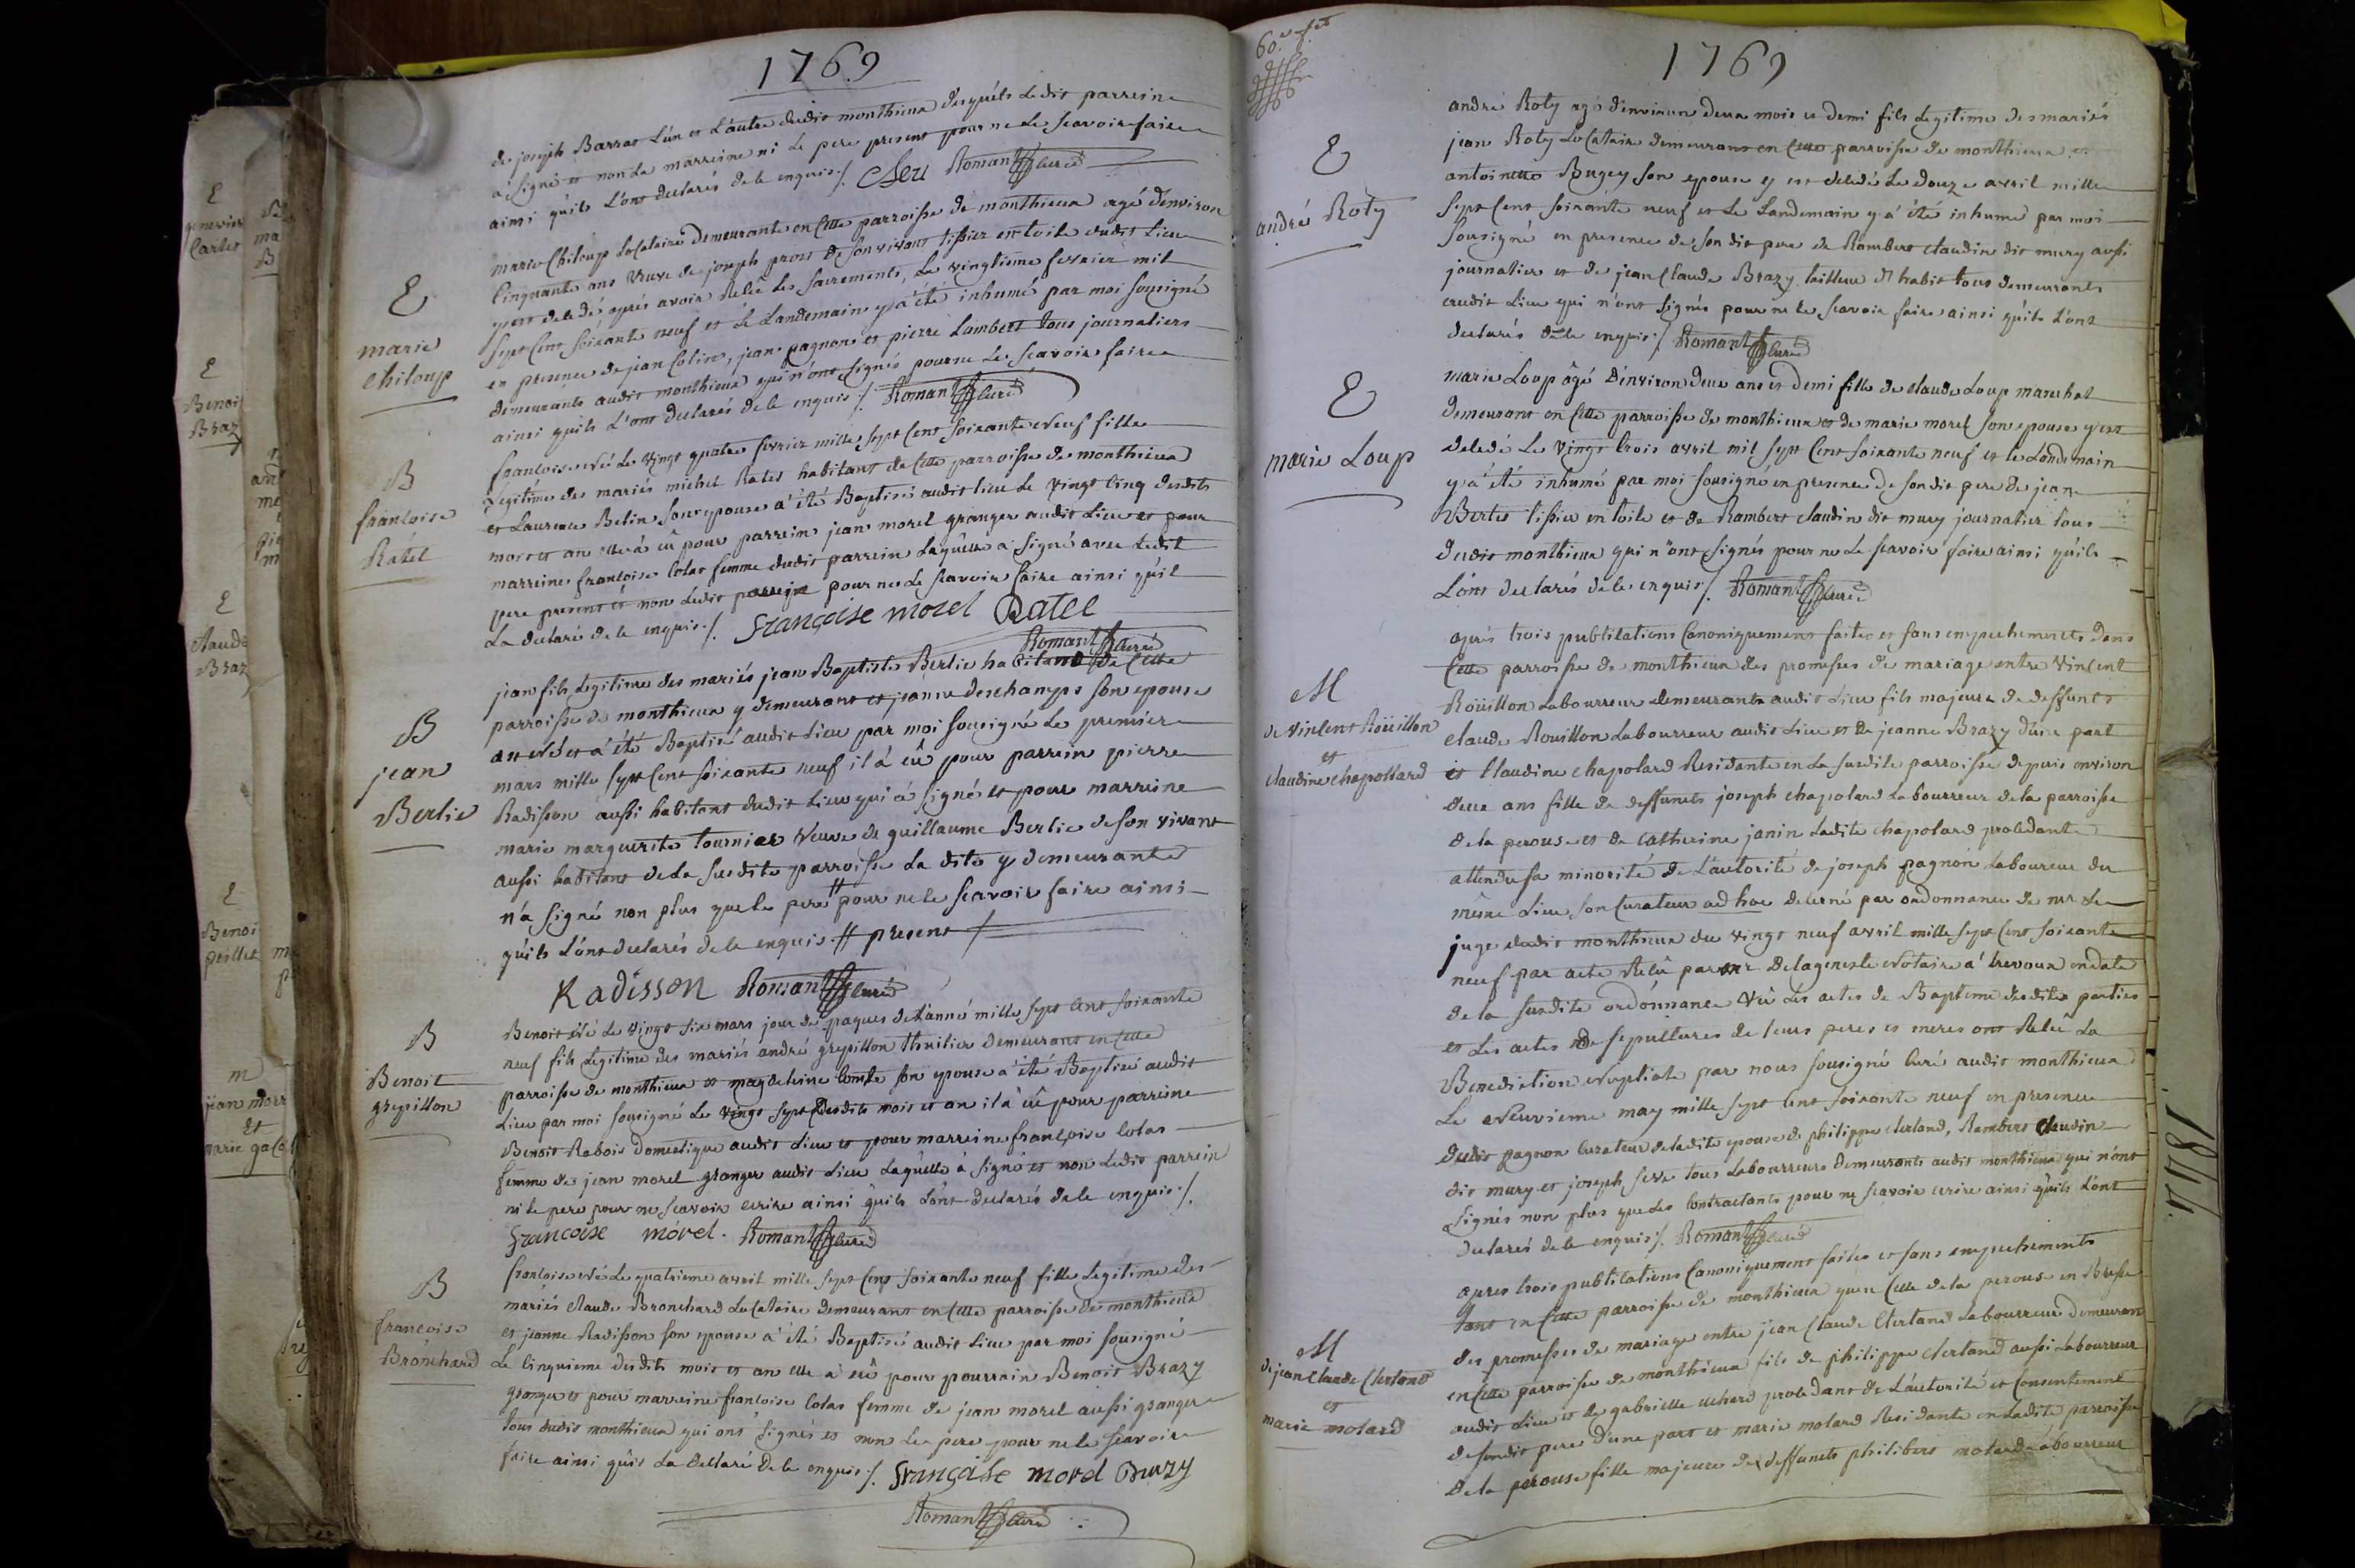 1769
de joseph Barras L'un et L'autre dudit monthieux desquels Ledit parreine
a signé et non La marreine ni Le pere present pour ne Le scavoir faire
ainsi qu'ils L'ont declarés de le enquis ./. Romant curé
E
marie
chiloup
marie Chiloup Locataire demeurante en Cette parroisse de monthieux agé d'environ
Cinquante ans veuve de joseph gros de son vivant tissier en toile audit Lieu
y est decedés après avoir Reçû Les sacrements, Le vingtieme fevrier mil
sept Cent soixante neuf et Le Landemain y a été inhumé par moi sousigné
en presence de jean Colin, jean pagnon et pierre Lambert tous journaliers
demeurants audit monthieux qui n'ont signés pour ne Le scavoir faire
ainsi qu'ils L'ont declarés de le enquis ./. Romant curé
B
francoise
Ratel
francoise née Le vingt quatre fevrier mille sept Cent soixante neuf fille
Legitime des mariés michel Ratel habitant de Cette parroisse de monthieux
et Laurence Belin son epouse a été Baptisé audit lieu Le vingt Cinq desdits
mois et an elle a eû pour parrein jean morel granger audit Lieu et pour
marreine francoise Colas femme dudit parrein Laquelle a signé avec Ledit
pere present et non Ledit parrein pour ne Le scavoir faire ainsi qu'il
La declaré de le enquis ./. Françoise morel Ratel
Romant curé
B
jean
Berlie
jean fils Legitime des mariés jean Baptiste Berlie habitant de Cette
parroisse de monthieux y demeurant et jeanne deschamps son epouse
est né et a été Baptisé audit Lieu par moi sousigné Le premier
mars mille sept Cent soixante neuf il à eû pour parrein pierre
Radisson aussi habitant dudit Lieu qui a signé et pour marreine
marie marguerite tournier veuve de guillaume Berlie de son vivant
aussi habitant de La susdite parroisse La dite y demeurante
n'a signé non plus que Le pere # pour ne le scavoir faire ainsi
qu'ils L'ont declarés de le enquis # present /
Radisson Romant curé
B
Benoit
grepillon
Benoit né Le vingt six mars jour de paques de L'anné mille sept Cent soixante
neuf fils Legitime des mariés andré grepillon thuilier demeurant en Cette
parroisse de monthieux et magdeleine Comte son epouse a été Baptisé audit
Lieu par moi sousigné Le vingt sept desdits mois et an il à eû pour parreine
Benoit Rabois Domestique audit Lieu et pour marreine françoise Colas
femme de jean morel granger audit Lieu Laquelle à signé et non Ledit parrein
ni le pere pour ne scavoir ecrire ainsi qu'ils L'ont declarés de le enquis ./.
Francoise morel. Romant curé
B
francoise
Bronchard
francoise née Le quatrieme avril mille sept Cent soixante neuf fille Legitime des
mariés claude Bronchard Locataire demeurant en Cette parroisse de monthieux
et jeanne Radisson son epouse à été Baptisé audit Lieu par moi sousigné
Le Cinquieme desdits mois et an elle a eû pour pourrain Benoit Brazy
granger et pour marreine francoise Colas femme de jean morel aussi granger
tous dudit monthieux qui ont signés et non Le pere pour ne le scavoir
faire ainsi qu'il La declaré de le enquis ./. Françoise morel Brazy
Romant curé
1769
E
andré Roty
andré Roty agé d'environ deux mois et demi fils Legitime des mariés
jean Roty Locataire demeurant en Cette parroisse de monthieux et
antoinette Bugey son epouse y est decedé Le douze avril mille
sept Cent soixante neuf et Le Landemain y à été inhumé par moi
sousigné en presence de son dit pere de Rambert claudin dit mury aussi
journalier et de jean Claude Brazy tailleur d'habit tous demeurants
audit Lieu qui n'ont signés pour ne le scavoir faire ainsi qu'ils L'ont
declarés de le enquis ./. Romant curé
E
marie Loup
marie Loup âgé d'environ deux ans et demi fille de claude Loup marechal
demeurant en Cette parroisse de monthieux et de marie morel son epouse y est
decedé Le vingt trois avril mil sept Cent soixante neuf et le Landemain
y à été inhumé par moi sousigné en presence de son dit pere de jean
Bertet tissier en toile et de Rambert claudin dit mury journalier tous
dudit monthieux qui n'ont signés pour ne Le scavoir faire ainsi qu'ils
L'ont declarés de le enquis ./. Romant curé
M
de vincent Roüillon
et
claudine chapollard
après trois publications Canoniquement faites et sans empechements dans
Cette parroisse de monthieux des promesses de mariage entre vincent
Roüillon Labourreur demeurante audit Lieu fils majeur de deffunts
claude Rouillon Labourreur audit Lieu et de jeanne Brazy d'une part
et Claudine chapolard Residante en La susdite parroisse depuis environ
deux ans fille de deffuncts joseph chapolard Labourreur de la parroisse
de la perouse et de Catherine janin Ladite chapolard procedante
attendu sa minorité de L'autorité de joseph pagnon Laboureur du
même Lieu son Curateur ad hoc decerné par ordonnance de mr Le
juge dudit monthieux du vingt neuf avril mille sept Cent soixante
neuf par acte Reçû par mr Delageneste Notaire à trevoux en date
de la susdite ordonnance vû Les actes de Bapteme desdites parties
et Les actes de sepultures de leurs peres et meres ont Reçû La
Benediction Nuptiale par nous sousigné Curé audit monthieux
Le Neuvieme may mille sept Cent soixante neuf en presence
dudit pagnon Curateur de Ladite epouse de philippe clerland, Rambert claudin
dit mury et joseph serve tous Labourreurs demeurants audit monthieux qui n'ont
signés non plus que Les Contractants pour ne scavoir ecrire ainsi qu'ils L'ont
declarés de le enquis ./. Romant curé
M
de jean Claude Clerland
et
marie molard
après trois publications Canoniquement faites et sans empechements
tant en Cette parroisse de monthieux qu'en Celle de la perouse en Bresse
des promesses de mariage entre jean Claude Clerland Labourreur demeurant
en Cette parroisse de monthieux fils de philippe clerland aussi Labourreur
audit Lieu et de gabrielle procedant de L'autorité et Consentement
de sondit pere d'une part et marie molard Residante en Ladite parroisse
de la perouse fille majeure de deffuncts philibert molard Labourreur
1844.